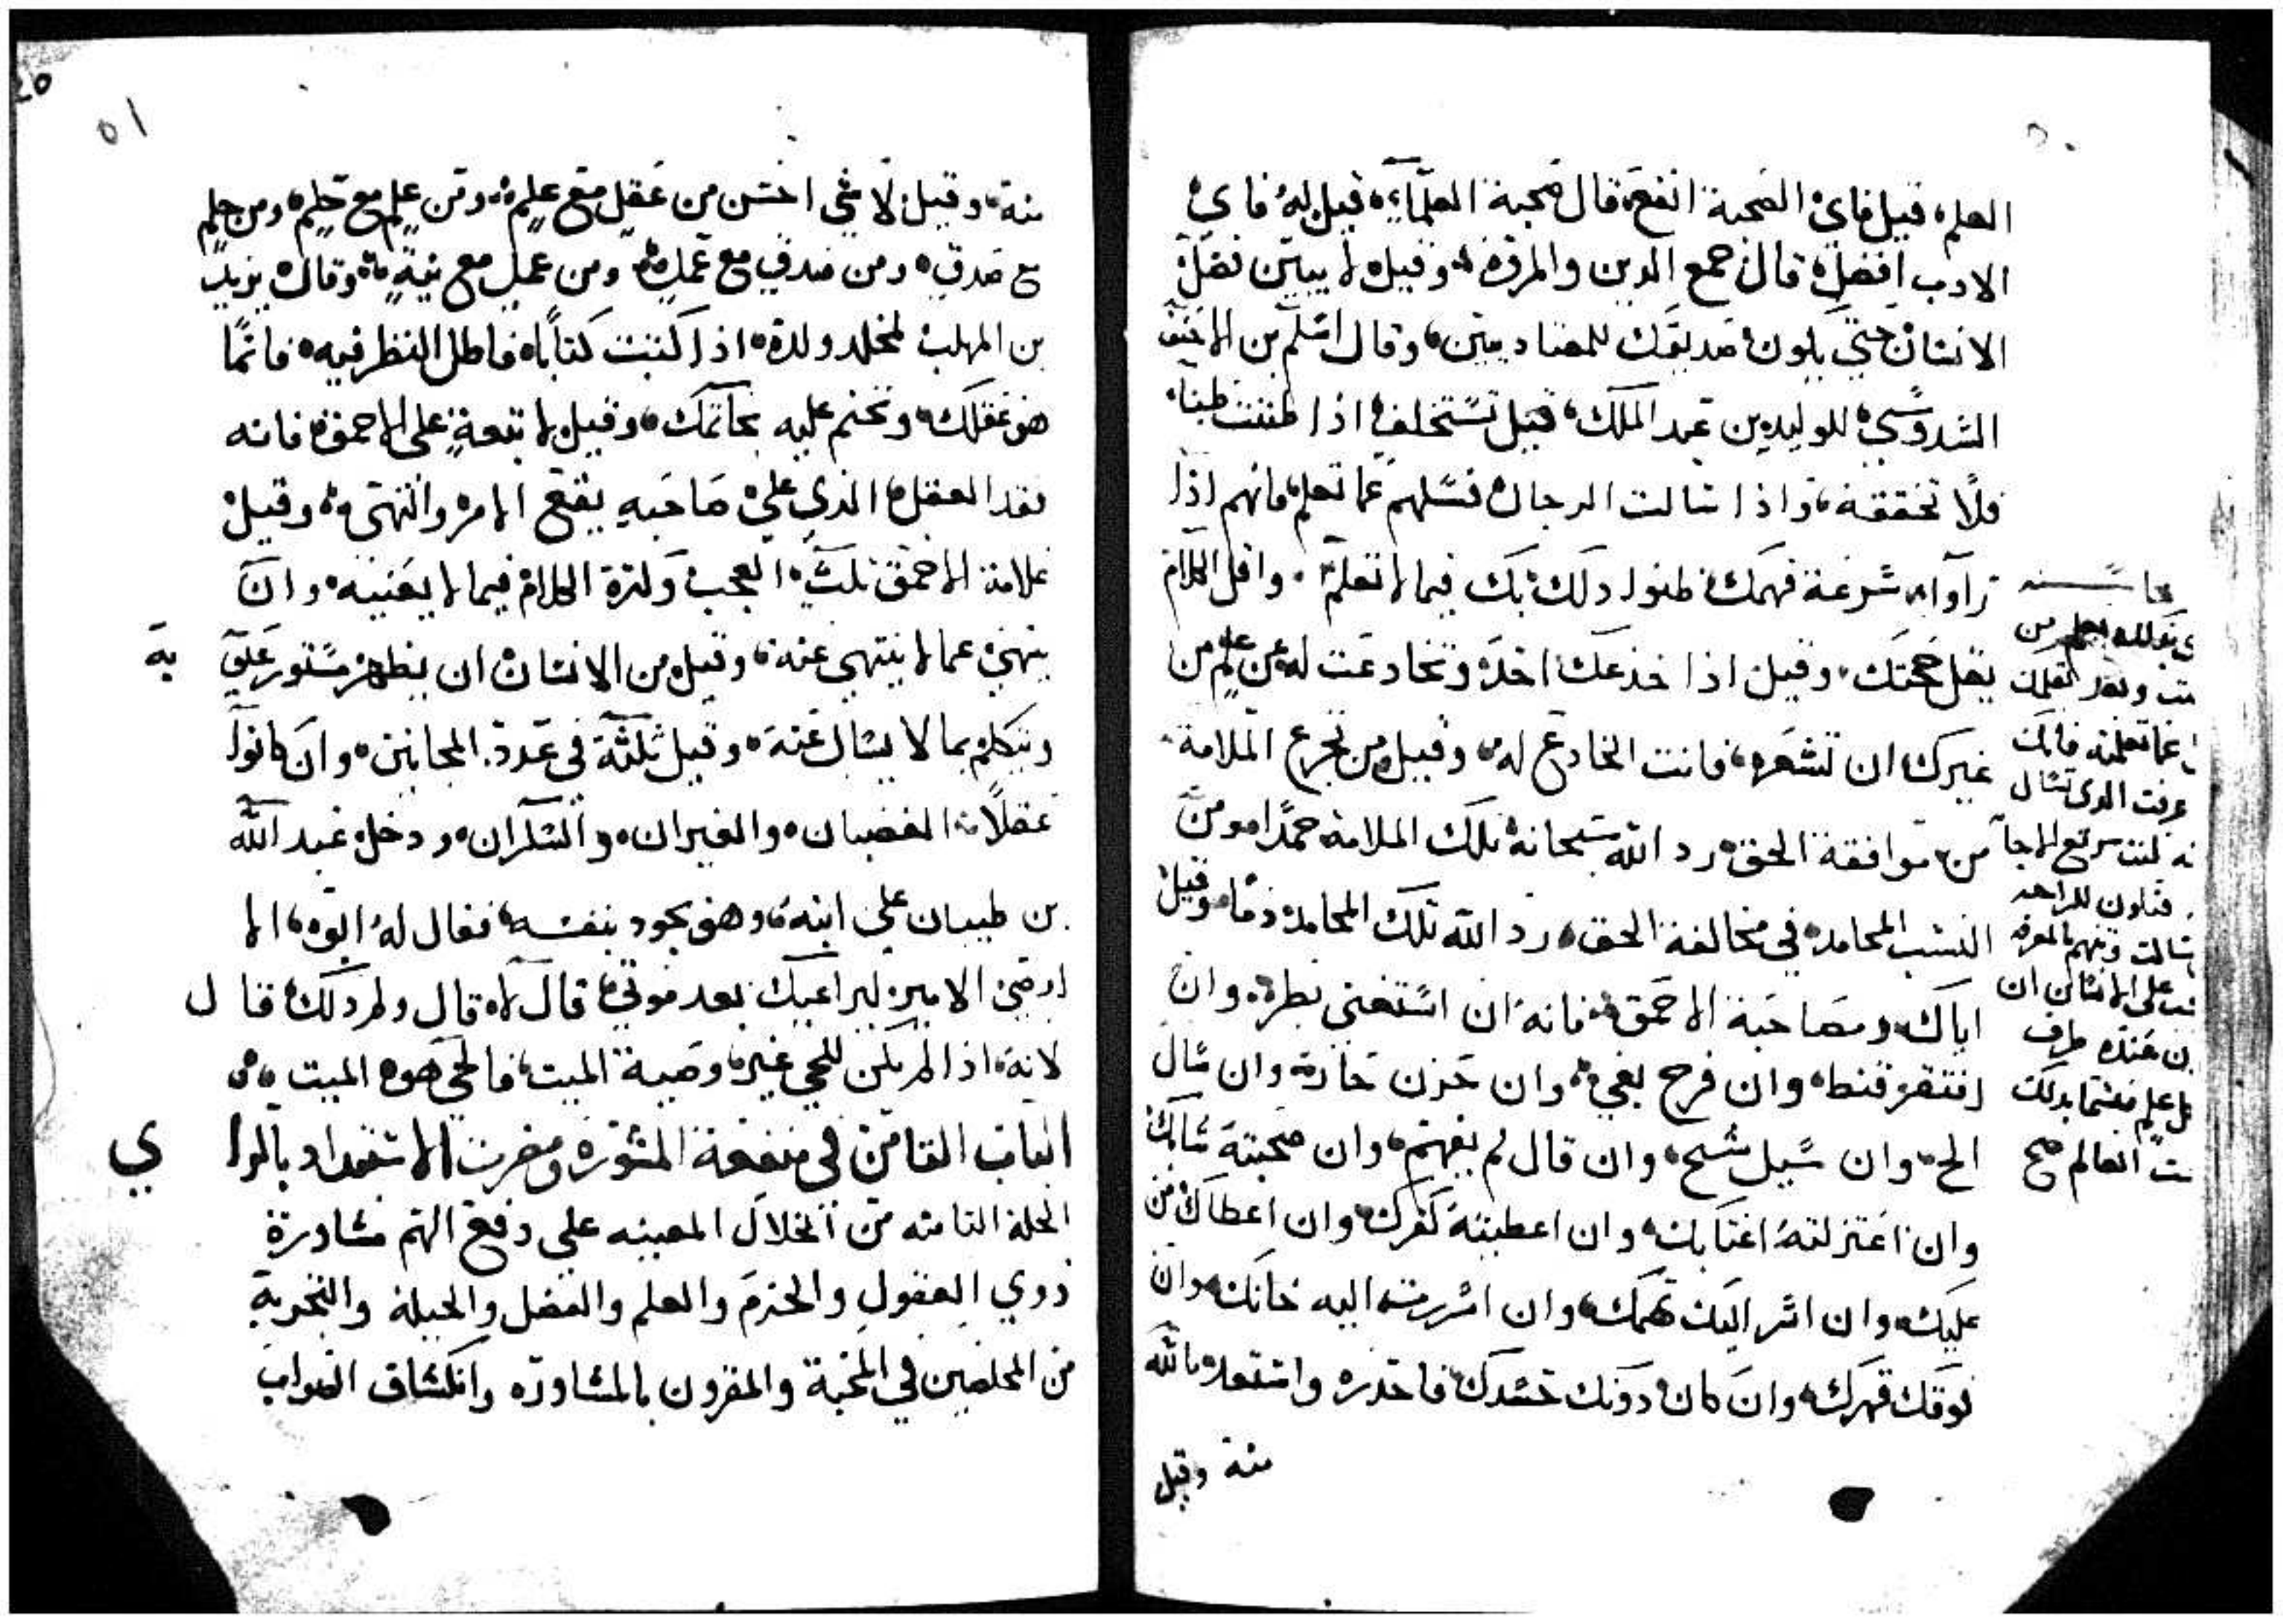 العلم، قيل فاي الصحبة انفع، قال صحبة العلماء، قيل له فاي
الادب افضل، قال جمع الدين والمروة، وقيل لا يبين فضل
الانسان حتي يكون صديقك للمضاديين، وقال اسلم بن الاحنف
السدوسي للوليد بن عبد الملك، قبل تستخلف اذا ظننت ظنا،
فلا تحققه، واذا سالت الرجال فسلهم عما تعلم، فانهم اذا
راوا سرعة فهمك ظنوا ذلك بك فيما لا تعلم، واقل الكلام
يقل حجتك، وقيل اذا خدعك احد وتخادعت له عن علم من
غيرك ان تشعره، فانت الخادع له، وقيل من تجرع الملامة
من موافقة الحق، رد الله سبحانه تلك الملامة حمدا، ومن
اكتسب المحامد في مخالفة الحق، رد الله تلك المحامد ذما، وقيل
اياك ومصاحبة الاحمق، فانه ان استغني بطر، وان
افتقر قنط، وان فرح بغي، وان حزن حار، وان سال
الح، وان سيل شح، وان قال لم يفهم، وان صحبته
وان اعتزلته اغتابك، وان اعطيته كفرك، وان اعطاك من
عليك، وان اسر اليك تهمك، وان اسررت اليه خانك، وان
فوقك قهرك، وان كان دونك حسدك، فاحذره واستعذ بالله
منه وقيل
عما تعلمته فانك
عرفت الذي تسال
سريع الجا
سالت
علي الانسان ان
عنده طرف
علم
العالم صح
٥١
منه، وقيل لا شي احسن من عقل مع علم، ومن علم مع حلم، ومن حلم
مع صدق، ومن صدق مع عمل، ومن عمل مع نية، وقال يزيد
بن المهلب لمخلد ولده، اذا كتبت كتابا، فاطل النظر فيه، فانما
هو عقلك، وتختم عليه بخاتمك، وقيل لا تبعة علي الاحمق، فانه
فقد العقل الذي علي صاحبه يقع الامر والنهي، وقيل
علامة الاحمق ثلث، العجب وكثرة الكلام فيما لا يعنيه، وان
ينهي عما لا ينتهي عنه، وقيل من الانسان ان يظهر مستور عليه به
ويتكلم بما لا يسال عنه، وقيل ثلثة في عدد المجانين، وان كانوا
عقلا، الغضبان، والغيران، والسكران، ودخل عبد الله
بن ظبيان علي ابنه، وهو يجود بنفسه، فقال له ابوه، الا
اوصي الامير ليراعيك بعد موتي، قال لا، قال ولم ذلك، قال
لانه، اذا لم يكن للحي غير، وصية الميت، فالحي هو الميت
الباب الثامن في منفعة المشوره ومضرت الاستبداد بالراي
الخلة الثامنه من الخلال المعينه علي دفع الهم مشاورة
ذوي العقول والحزم والعلم والفضل والحيلة والتجربة
من المخلصين في المحبة والمقرون بالمشاوره وانكشاف الصواب